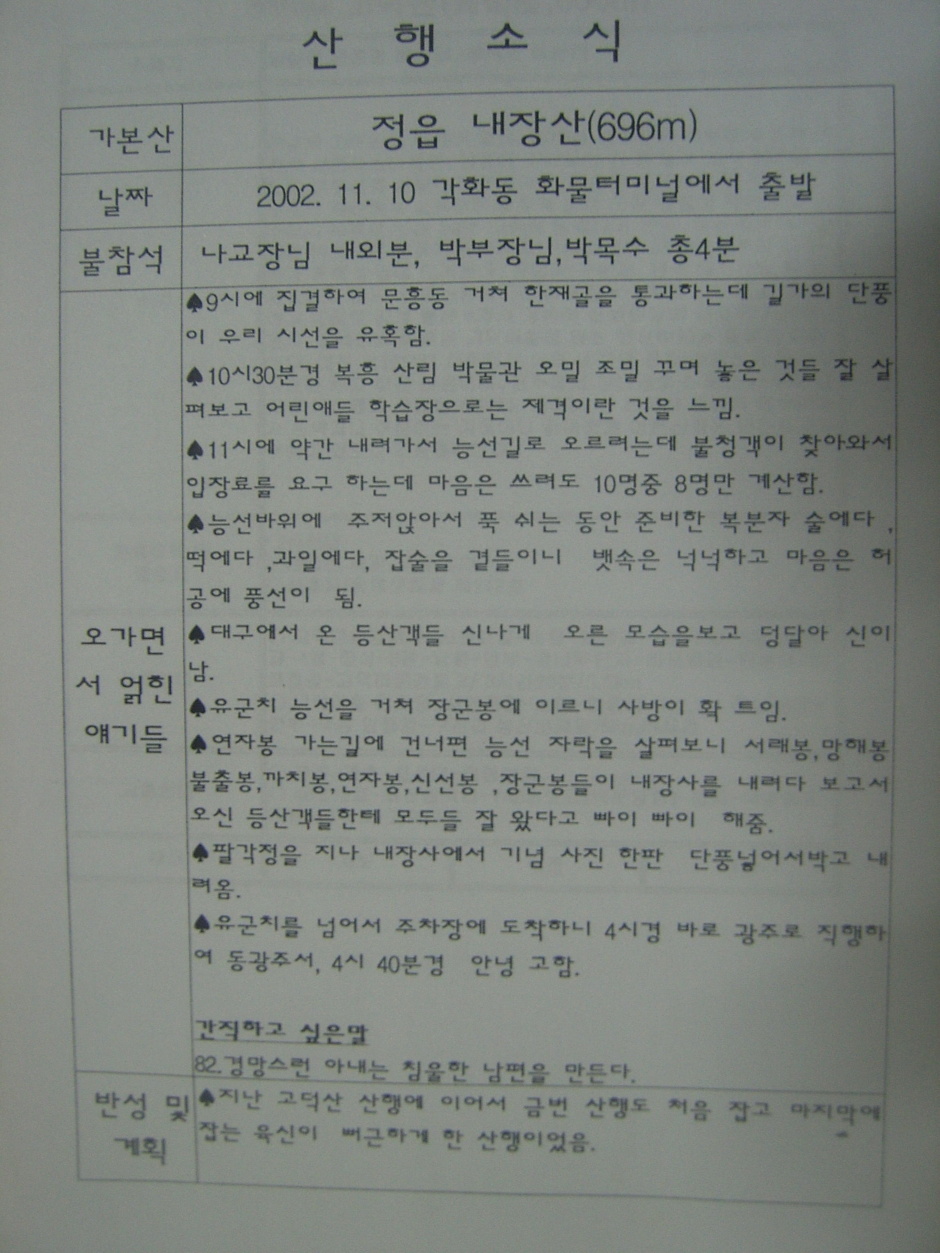 산 행 소 식
가본산 정읍 내장산(696m)
날짜 2002. 11. 10 각화동 화물터미널에서 출발
불참석 나교장님 내외분, 박부장님,박목수 총4분
♠9시에 집결하여 문흥동 거쳐 한재골을 통과하는데 길가의 단풍
이 우리 시선을 유혹함.
♠10시30분경 복흥 산림 박물관 오밀 조밀 꾸며 놓은 것들 잘 살
펴보고 어린애들 학습장으로는 제격이란 것을 느낌.
♠11시에 약간 내려가서 능선길로 오르려는데 불청객이 찾아와서
입장료를 요구 하는데 마음은 쓰려도 10명중 8명만 계산함.
♠능선바위에 주저앉아서 푹 쉬는 동안 준비한 복분자 술에다 ,
떡에다 ,과일에다, 잡술을 곁들이니 뱃속은 넉넉하고 마음은 허
공에 풍선이 됨.
오가면
서 얽힌
얘기들
♠대구에서 온 등산객들 신나게 오른 모습을보고 덩달아 신이
남.
♠유군치 능선을 거쳐 장군봉에 이르니 사방이 확 트임.
♠연자봉 가는길에 건너편 능선 자락을 살펴보니 서래봉,망해봉
불출봉,까치봉,연자봉,신선봉 ,장군봉들이 내장사를 내려다 보고서
오신 등산객들한테 모두들 잘 왔다고 빠이 빠이 해줌.
♠팔각정을 지나 내장사에서 기념 사진 한판 단풍넣어서박고 내
려옴.
♠유군치를 넘어서 주차장에 도착하니 4시경 바로 광주로 직행하
여 동광주서, 4시 40분경 안녕 고함.
간직하고 싶은말
82.경망스런 아내는 침울한 남편을 만든다.
반성 및
계획
♠지난 고덕산 산행에 이어서 금번 산행도 처음 잡고 마지막에
잡는 육신이 뻐근하게 한 산행이었음.